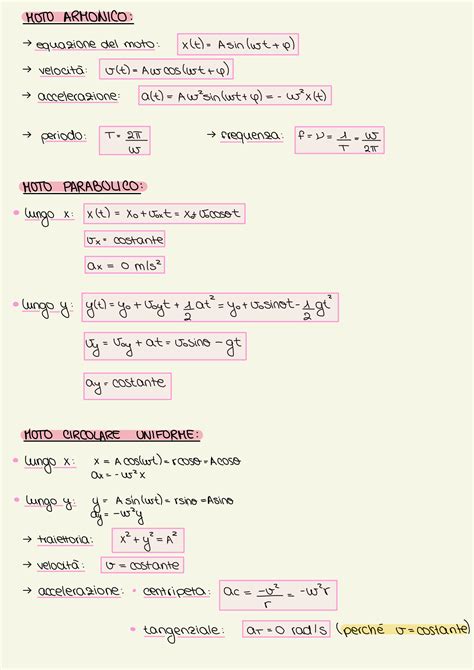 MOTO ARMONICO:
→ equazione del moto: x(t) = A sin(ωt + φ)
→ velocità: v(t) = Aω cos(ωt + φ)
→ accelerazione: a(t) = Aω² sin(ωt + φ) = - ω² x(t)
→ periodo: T = 2π/ω → frequenza: f = ν = 1/T = ω/2π
MOTO PARABOLICO:
• lungo x: x(t) = x₀ + v₀ₓt = x₀+ v₀cosθt
vₓ = costante
aₓ = 0 m/s²
• lungo y: y(t) = y₀ + v₀yt + 1/2 at² = y₀ + v₀sinθt - 1/2 gt²
vy = v₀y + at = v₀sinθ - gt
ay = costante
MOTO CIRCOLARE UNIFORME:
• lungo x: x = A cos(ωt) = r cosθ = A cosθ
aₓ = -ω²x
• lungo y: y = A sin(ωt) = r sinθ = A sinθ
ay = -ω²y
→ traiettoria: x² + y² = A²
→ velocità: v = costante
→ accelerazione: • centripeta: ac = -v²/r = -ω²r
• tangenziale: aT = 0 rad/s (perché v = costante)